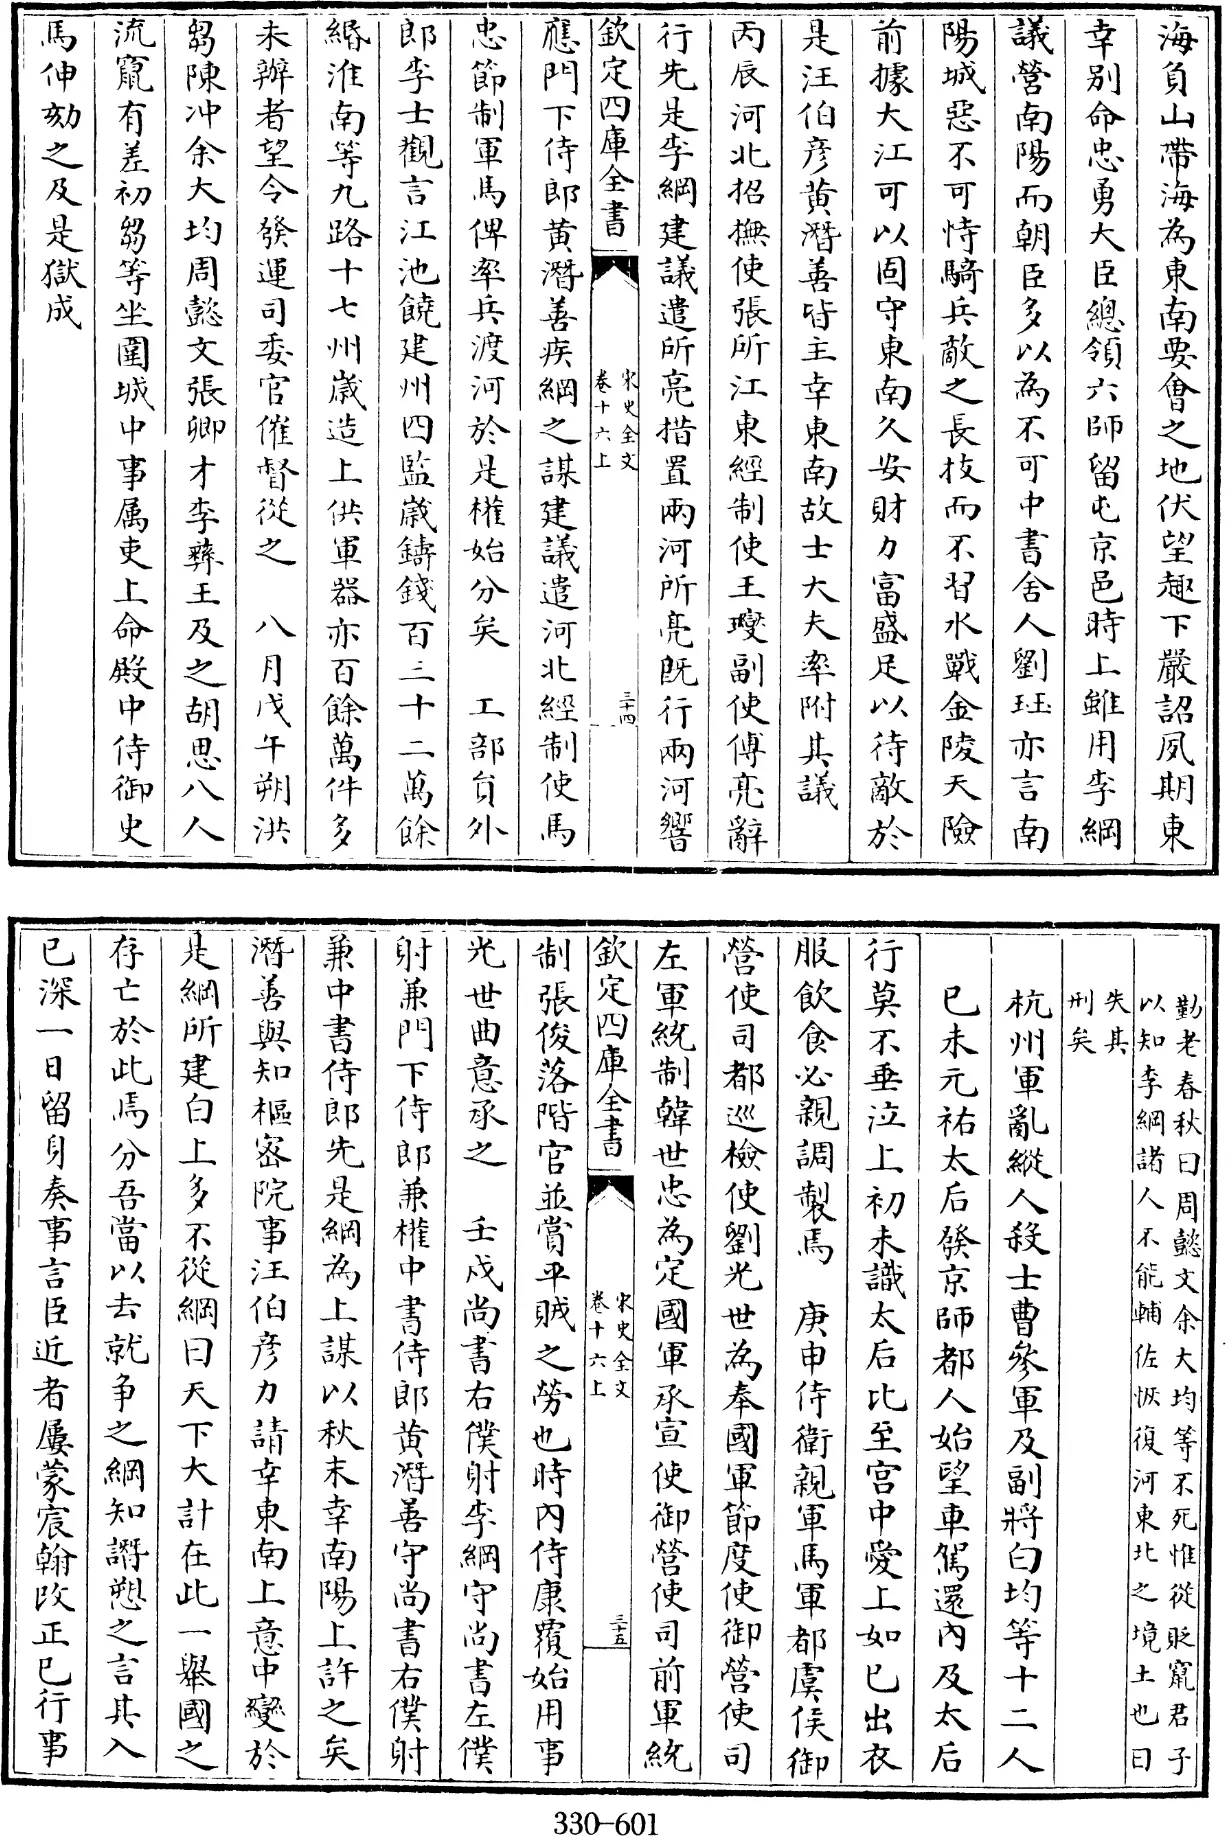 海負山帶海為東南要會之地伏望趣下嚴詔夙期東
幸别命忠勇大臣總領六師留屯京邑時上雖用李綱
議營南陽而朝臣多以為不可中書舍人劉珏亦言南
陽城惡不可恃騎兵敵之長技而不習水戰金陵天險
前據大江可以固守東南久安財力富盛足以待敵於
是汪伯彦黄潛善皆主幸東南故士大夫率附其議
丙辰河北招撫使張所江東經制使王𤫉副使傅亮辭
行先是李綱建議遣所亮措置兩河所亮既行兩河響
欽定四庫全書
宋史全文
卷十六上
三十四
應門下侍郎黄潛善疾綱之謀建議遣河北經制使馬
忠節制軍馬俾率兵渡河於是權始分矣　工部員外
郎李士觀言江池饒建州四監歲鑄錢百三十二萬餘
緡淮南等九路十七州歲造上供軍器亦百餘萬件多
未辦者望令發運司委官催督從之　八月戊午朔洪
芻陳冲余大均周懿文張卿才李彝王及之胡思八人
流竄有差初芻等坐圍城中事属吏上命殿中侍御史
馬伸劾之及是獄成
勤老春秋曰周懿文余大均等不死惟從貶竄君子
以知李綱諸人不能輔佐恢復河東北之境土也曰
失其
刑矣
杭州軍亂縱人殺士曹參軍及副將白均等十二人
已未元祐太后發京師都人始望車駕還内及太后
行莫不垂泣上初未識太后比至宫中愛上如已出衣
服飲食必親調製焉　庚申侍衛親軍馬軍都虞侯御
營使司都巡檢使劉光世為奉國軍節度使御營使司
左軍統制韓世忠為定國軍承宣使御營使司前軍統
欽定四庫全書
宋史全文
卷十六上
三十五
制張俊落階官並賞平賊之勞也時内侍康履始用事
光世曲意承之　壬戌尚書右僕射李綱守尚書左僕
射兼門下侍郎兼權中書侍郎黄潛善守尚書右僕射
兼中書侍郎先是綱為上謀以秋末幸南陽上許之矣
潛善與知樞密院事汪伯彦力請幸東南上意中變於
是綱所建白上多不從綱曰天下大計在此一舉國之
存亡於此焉分吾當以去就争之綱知譖愬之言其入
已深一日留身奏事言臣近者屢蒙宸翰改正已行事
330-601